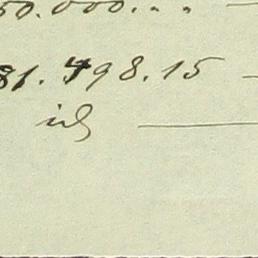 50.000. „ „ —
81.498.15 —
id —